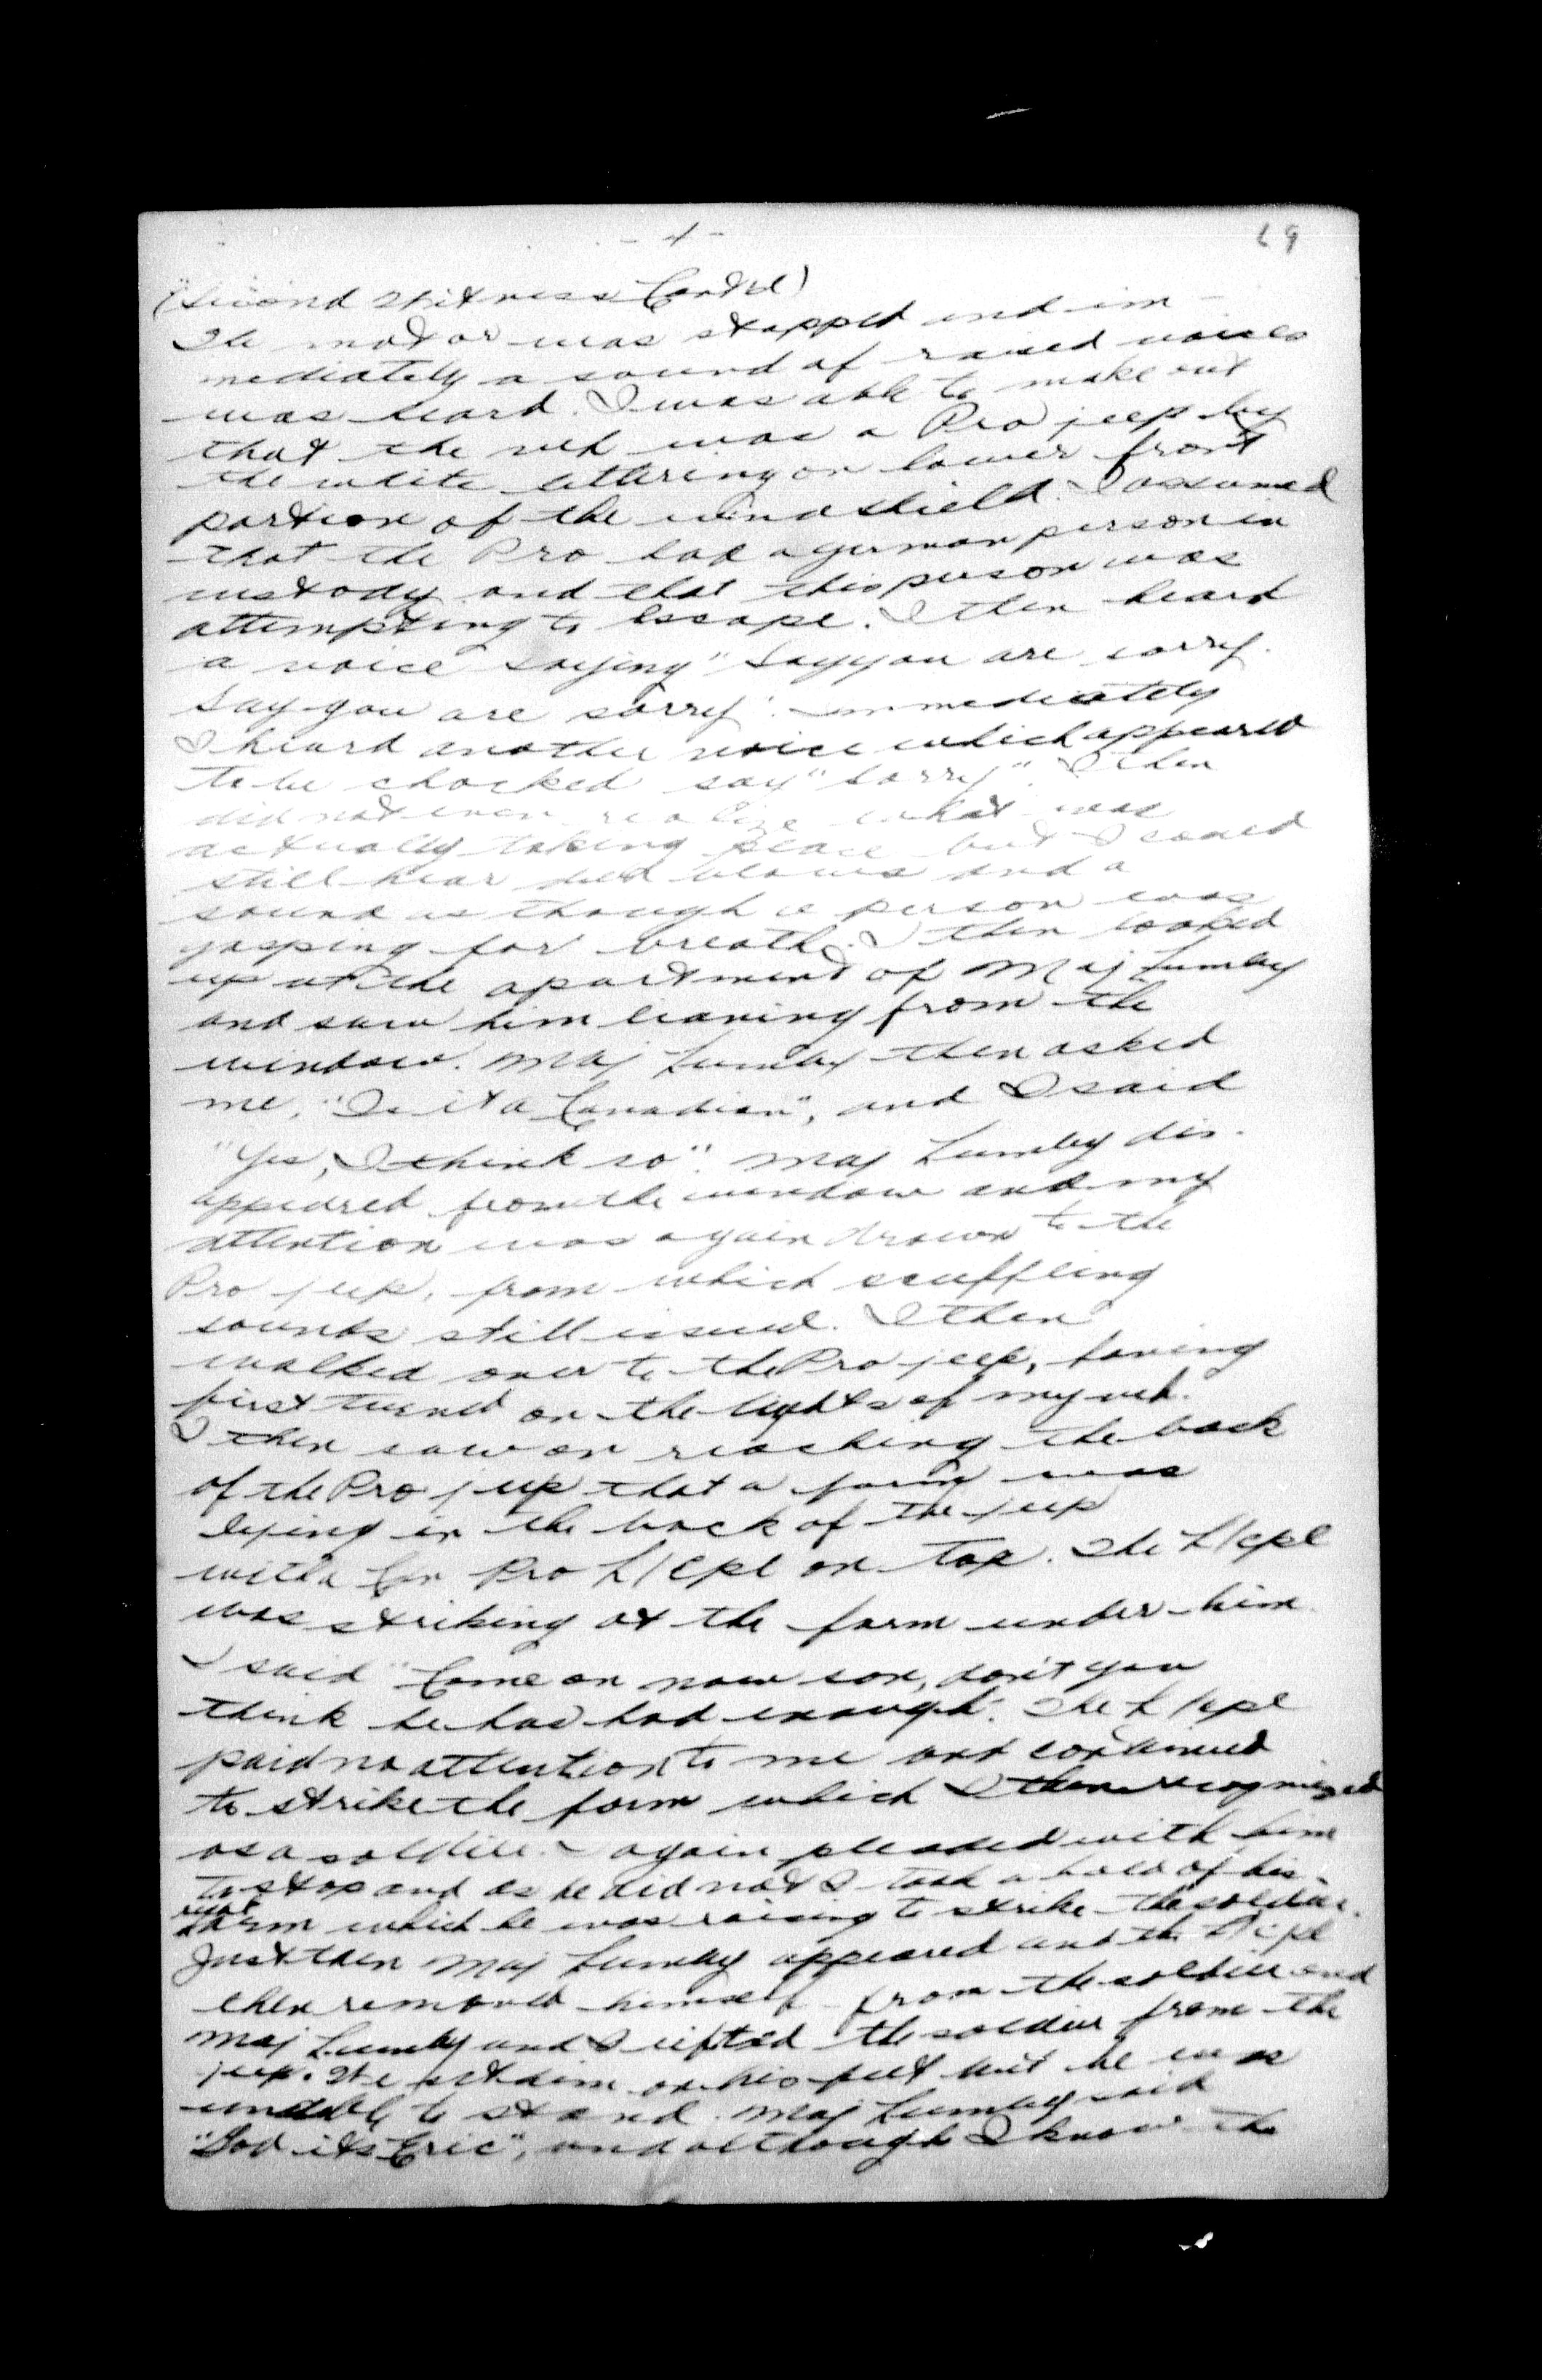 - 4 -
69
(Second Witness Cont'd)
The motor was stopped and im-
mediately a sound of raised voices
was heard. I was able to make out
that the veh was a Pro jeep by
the white lettering on lower front
portion of the windshield. I assumed
that the Pro had a german person in
custody and that this person was
attempting to escape. I then heard
a voice saying "Say you are sorry.
Say you are sorry". Immediately
I heard another voice which appeared
to be chocked say "Sorry". I then
did not even realize what was
actually taking place but I could
still hear blows and a
sound as though a person was
gasping for breath. I then looked
up at the apartment of Maj Lumby
and saw him leaning from the
window. Maj Lumby then asked
me, "Is it a Canadian", and I said
"Yes, I think so". Maj Lumby dis-
appeared from the window and my
attention was again drawn to the
Pro jeep, from which scuffling
sounds still issued. I then
walked over to the Pro jeep, having
first turned on the lights of my veh.
I then saw on reaching the back
of the Pro jeep that a form was
lying in the back of the jeep
with a Cdn Pro L/Cpl on top. The L/Cpl
was striking at the form under him.
I said "Come on now son, don't you
think he has had enough". The L/Cpl
paid no attention to me and continued
to strike the form which I then recognized
as a soldier. I again pleaded with him
to stop and as he did not I took a hold of his
right arm which he was raising to strike the soldier.
Just then Maj Lumby appeared and the L/Cpl
then removed himself from the soldier and
Maj Lumby and I lifted the soldier from the
jeep. We set him on his feet but he was
unable to stand. Maj Lumby said
"God its Eric", and although I know the